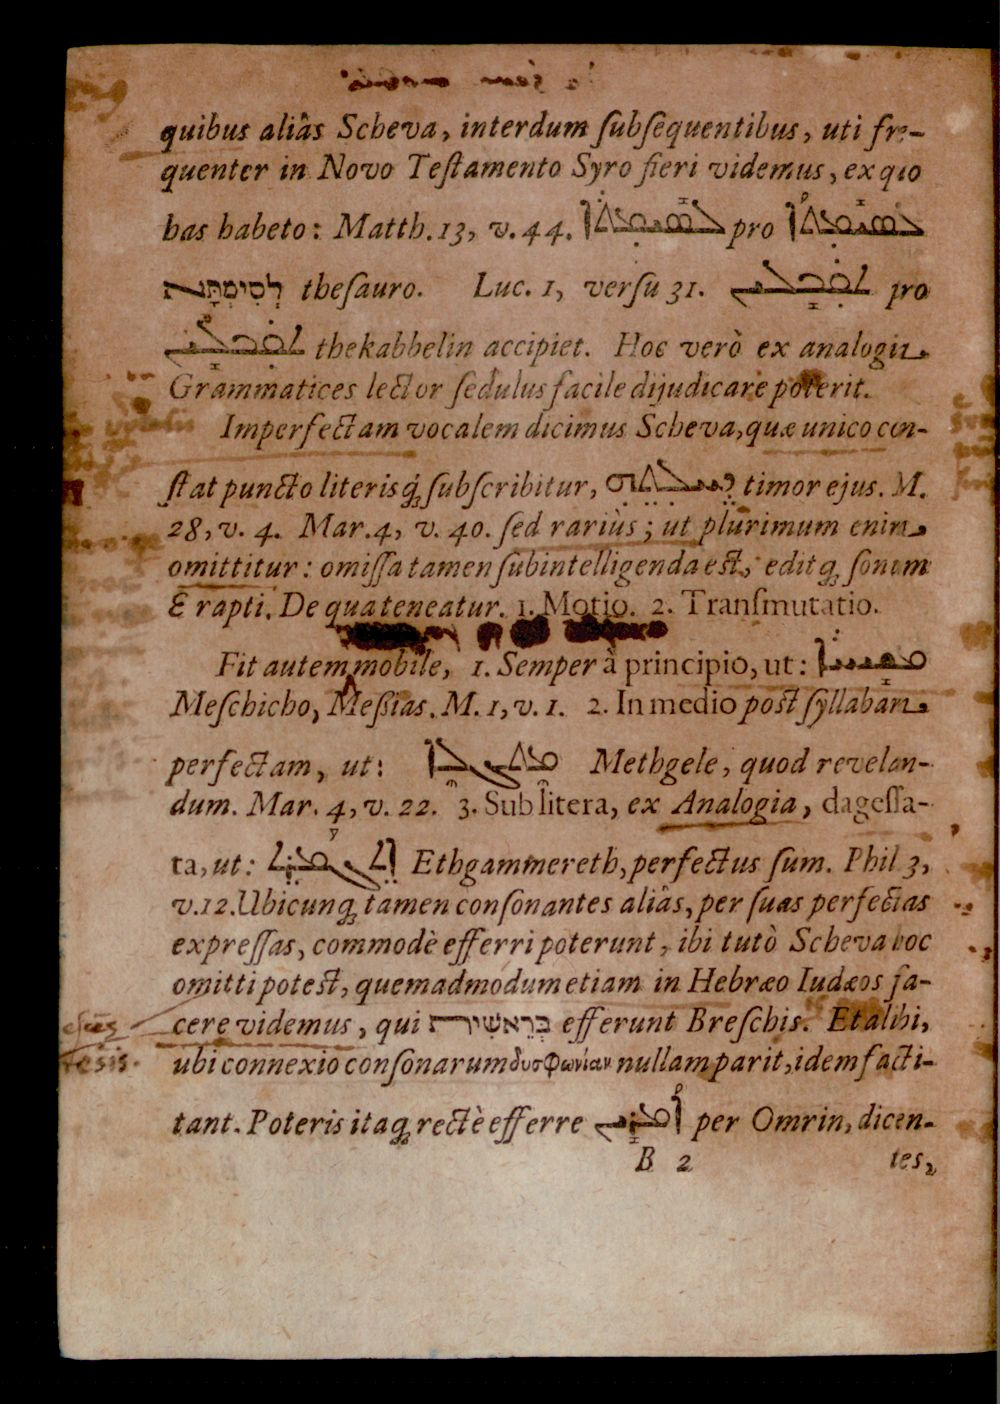 quibus aliâs Scheva, interdum ſubſequentibus, uti fre-
quenter in Novo Teſtamento Syro fieri videmus, ex quo
has habeto: Matth. 13, v. 44. pro
thesauro. Luc. 1, verſu 31. pro
thekabbelin accipiet. Hoc verò ex analogia
Grammatices lector ſedulus facile dijudicare poterit.
Imperfectam vocalem dicimus Scheva, quæ unico con-
ſtat puncto literisq́; ſubſcribitur, timor ejus. M.
28, v. 4. Mar. 4, v. 40. ſed rariùs; ut plurimum enim
omittitur: omiſſa tamen ſubintelligenda eſt, editq; ſonum
E rapti. De qua teneatur. 1. Motio. 2. Tranſmutatio.
Fit autem mobile, 1. Semper â principio, ut: ܡܫܝܚܐ
Meſchicho, Meſſias. M. 1, v. 1. 2. In medio poſt ſyllabam
perfectam, ut: Methgele, quod revelan-
dum. Mar. 4, v. 22. 3. Sub litera, ex Analogia, dageſſa-
ta, ut: Ethgammereth, perfectus ſum. Phil 3,
v. 12. Ubicunq; tamen conſonantes aliâs, per ſuas perfectas
expreſſas, commodè efferri poterunt, ibi tutò Scheva hoc
omitti poteſt, quemadmodum etiam in Hebræo Iudæos fa-
cere videmus, qui בְּרֵאשִׁית efferunt Breſchis. Et alibi,
ubi connexio conſonarum δυσφωνίαν nullam parit, idem facti-
tant. Poteris itaq; rectè efferre ܐܡܪܝܢ per Omrin, dicen-
B 2 tes,